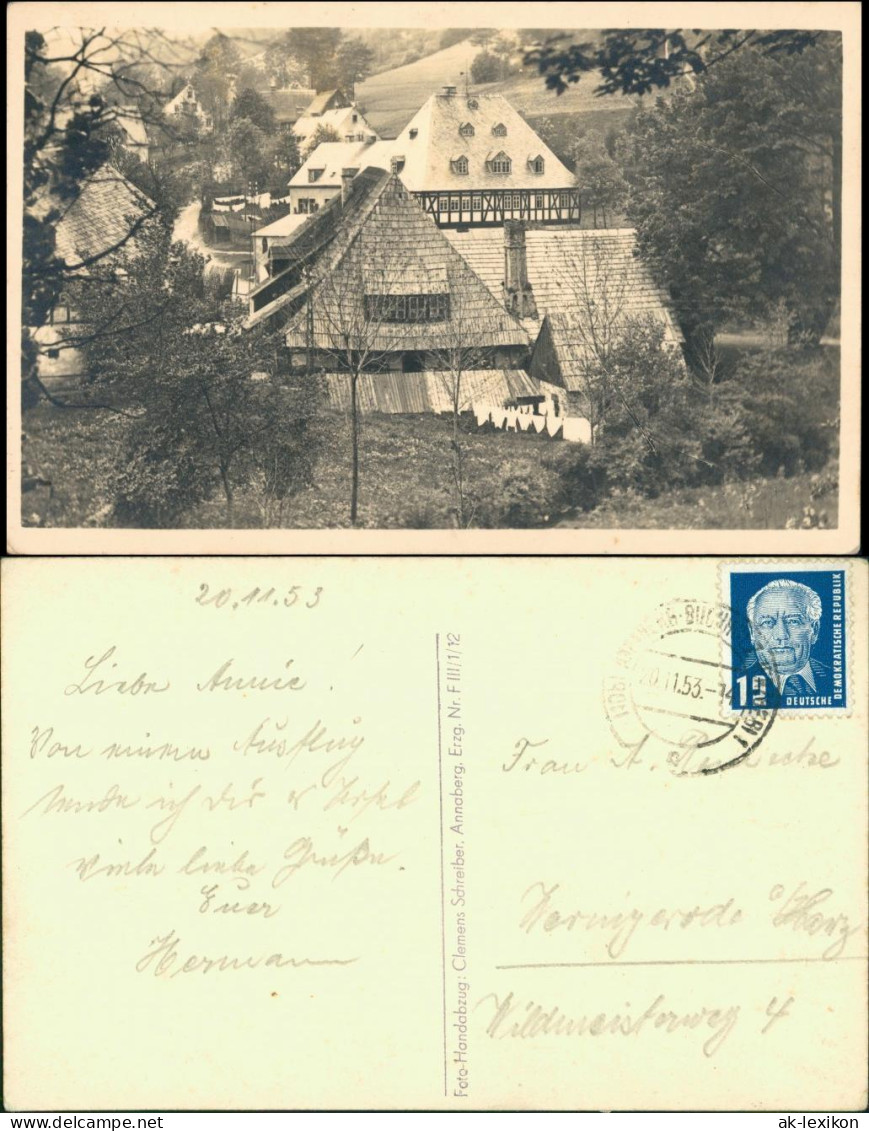 20.11.53
Liebe Annie!
Von einem Ausflug
sende ich dir u Ursel
viele liebe Grüße.
Euer
Hermann
Foto-Handabzug: Clemens Schreiber, Annaberg, Erzg. Nr. F III/1/12
20.11.53.-14
12
DEUTSCHE DEMOKRATISCHE REPUBLIK
Frau A.
Wernigerode a/Harz
Wildmeisterweg 4
ak-lexikon